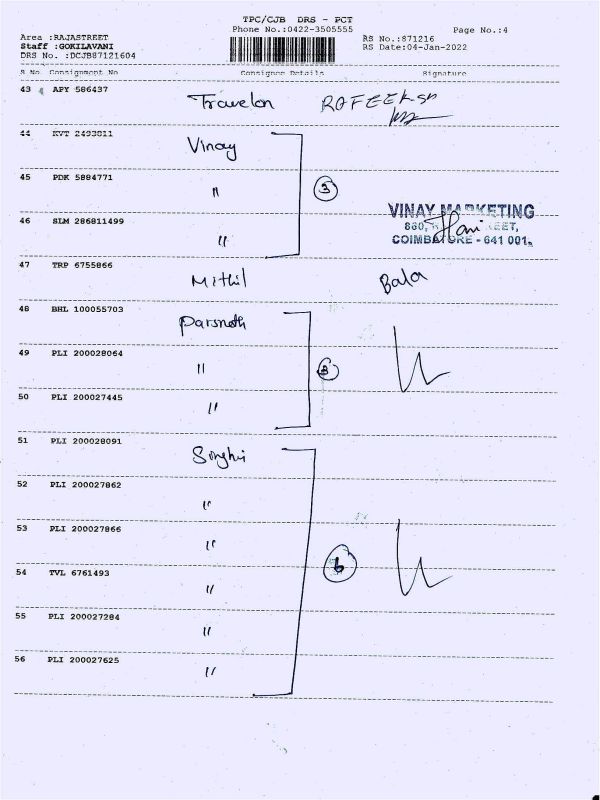 TPC/CJB DRS - PCT
Phone No.:0422-3505555 Page No.:4
Area :RAJASTREET RS No.:871216
Staff :GOKILAVANI RS Date:04-Jan-2022
DRS No. :DCJB87121604
S No Consignment No Consignee Details Signature
43 APY 586437 Travelon RAFEEK
44 KVT 2493811 Vinay
45 PDK 5884771 " 3
VINAY MARKETING
46 SLM 286811499 " 860, Hari EET,
COIMBATORE - 641 001.
47 TRP 6755866 Mithil Bala
48 BHL 100055703 Parsnath
49 PLI 200028064 " 3
50 PLI 200027445 "
51 PLI 200028091 Singhvi
52 PLI 200027862 "
53 PLI 200027866 "
54 TVL 6761493 " 6
55 PLI 200027284 "
56 PLI 200027625 "